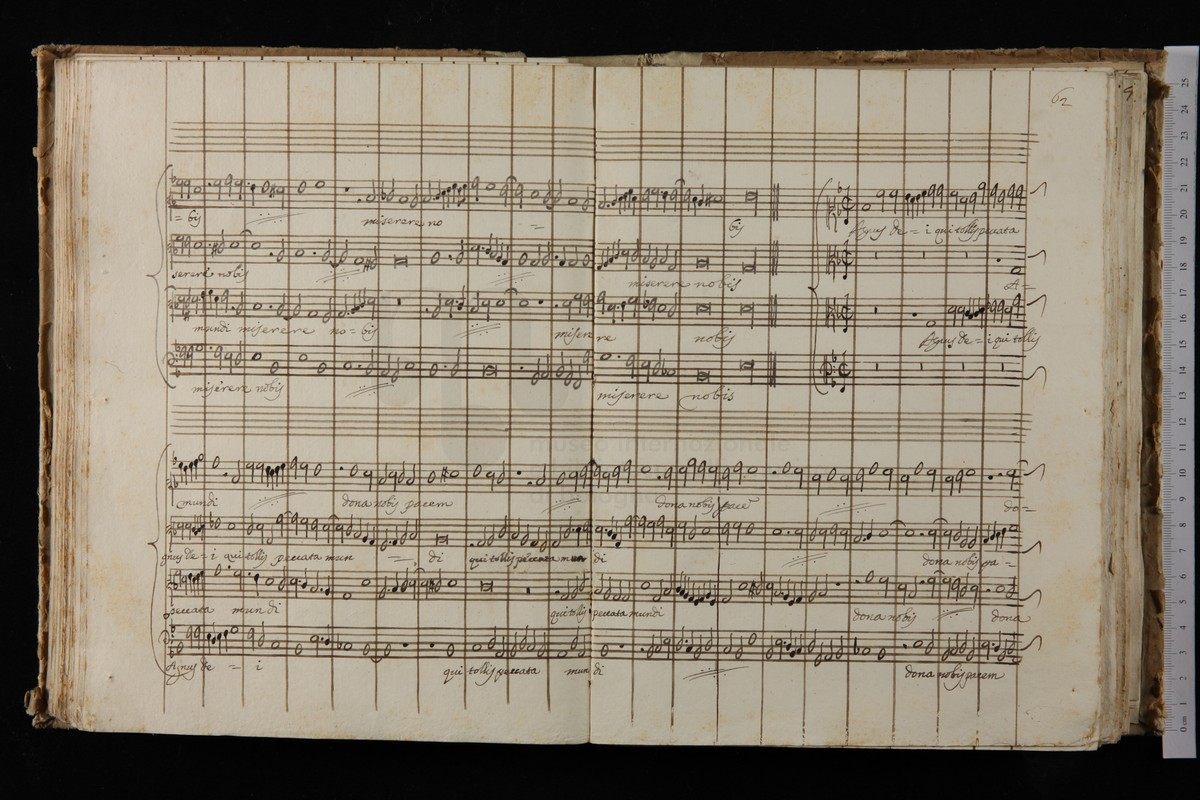 62
= bis miserere no = bis Agnus de = i qui tollis peccata
serere nobis miserere nobis A =
mundi miserere no = bis miserere nobis Agnus de = i qui tollis
miserere nobis miserere nobis
museo internazionale
mundi dona nobis pacem dona nobis pacē do =
gnus de = i qui tollis peccata mun = di qui tollis peccata mun di dona nobis pa =
peccata mundi qui tollis peccata mundi dona nobis dona
Agnus de = i qui tollis peccata mundi dona nobis pacem
0 cm 1 2 3 4 5 6 7 8 9 10 11 12 13 14 15 16 17 18 19 20 21 22 23 24 25